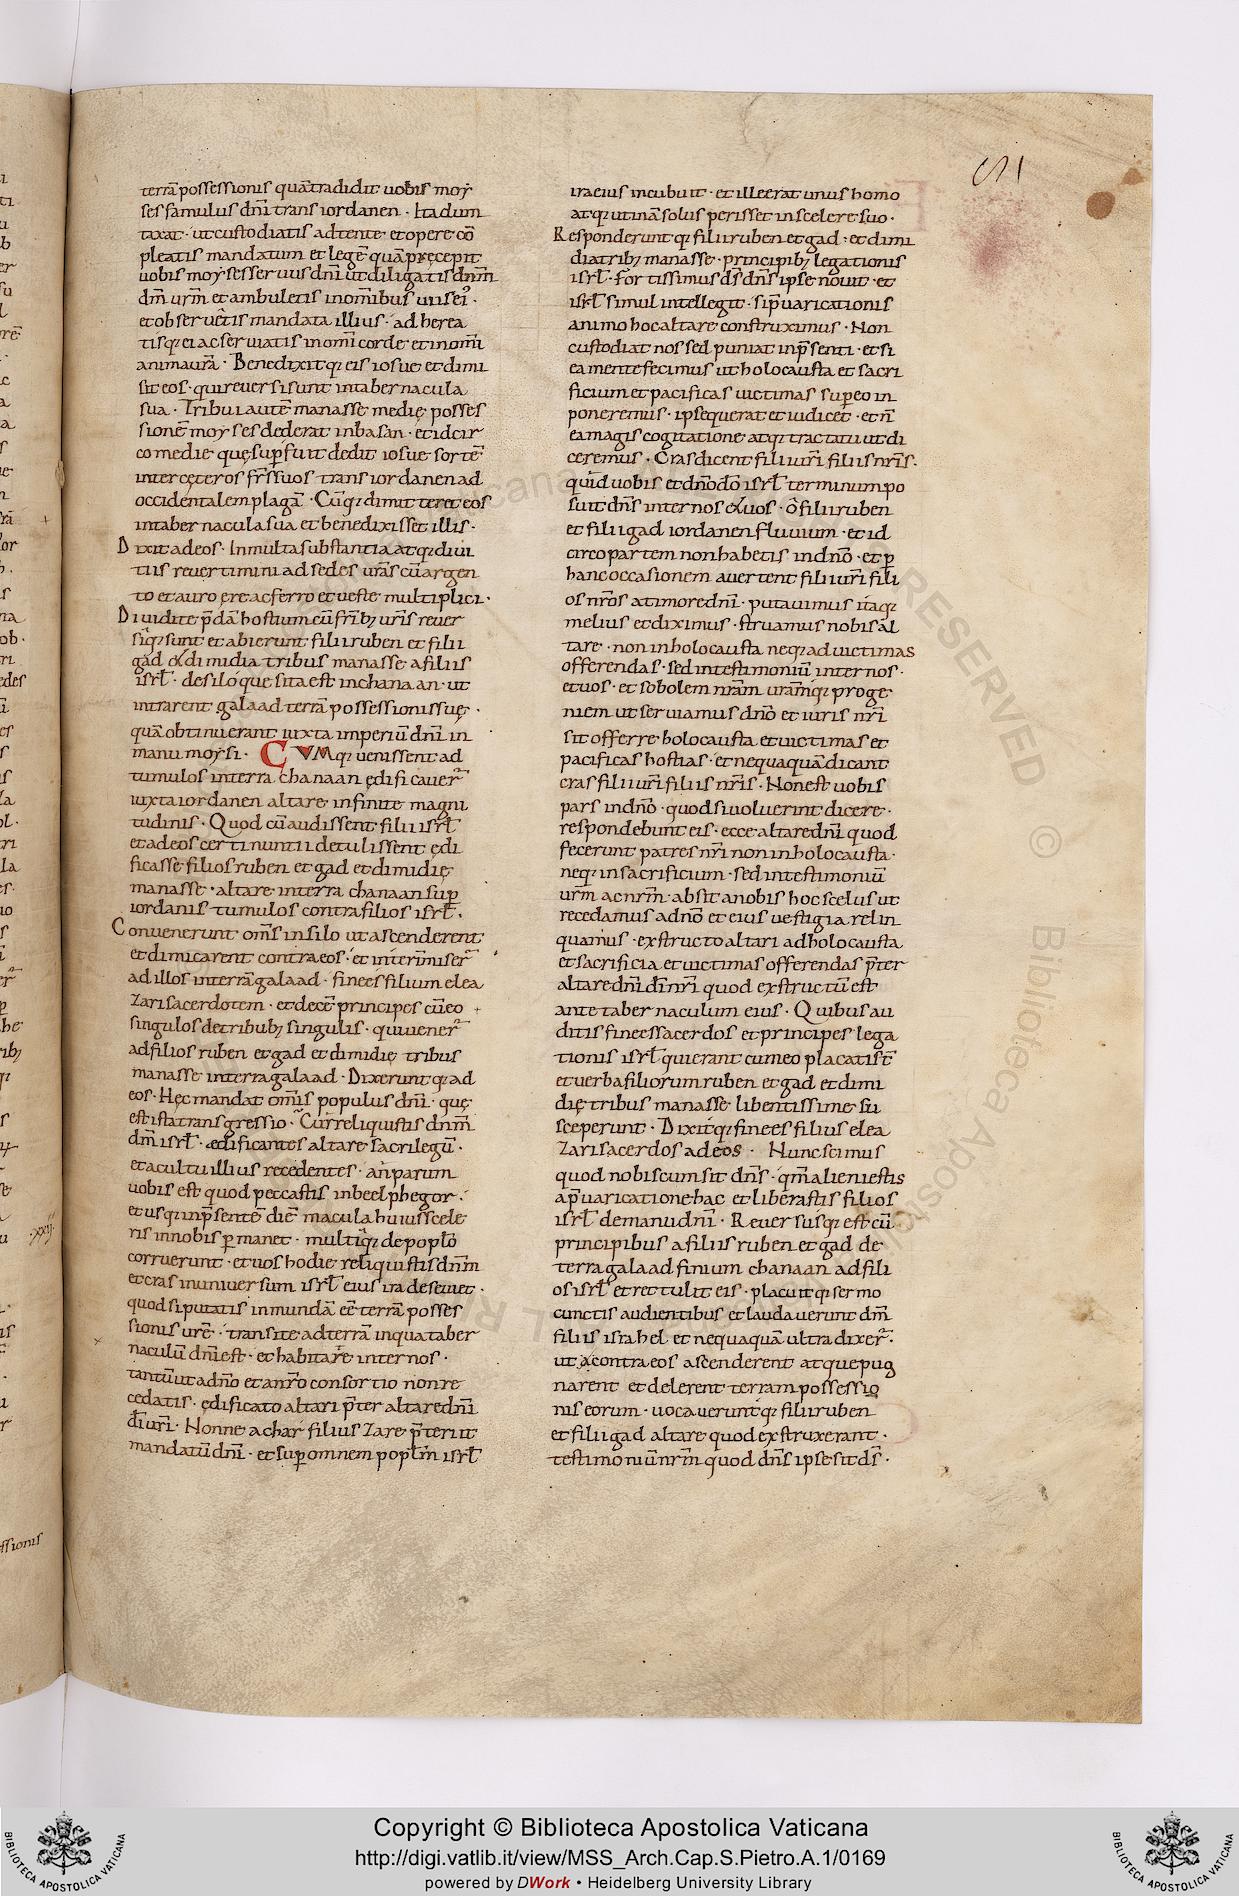 terrā possessionis quā tradidit uobis moy
ses famulus dn̄i trans iordanen · Ita dum
taxat · ut custodiatis adtente et opere cō
pleatis mandatum et legē quā pręcepit
uobis moyses seruus dn̄i ut diligatis dn̄m
dm̄ ur̄m et ambuletis in om̄ibus uiis ei᾽ ·
et obseruetis mandata illius · adherea
tisq; ei ac seruiatis in om̄i corde et in om̄i
anima ur̄a · Benedixitq; eis iosue et dimi
sit eos · qui reuersi sunt in tabernacula
sua · Tribui autē manasse medię posses
sionē moyses dederat in basan · et idcir
co medię quę sup̄fuit dedit iosue sortē
inter cęteros fr̄s suos trans iordanen ad
occidentalem plagā · Cūq; dimitteret eos
in tabernacula sua et benedixisset illis ·
Dixit ad eos · In multa substantia atq; diui
tiis reuertimini ad sedes ur̄as cū argen
to et auro ęre ac ferro et ueste multiplici ·
Diuidite p̄dā hostium cū fr̄ib; ur̄is reuer
siq; sunt et abierunt filii ruben et filii
gad & dimidia tribus manasse a filiis
isr̄l · de silo que sita est in chanaan · ut
intrarent galaad terrā possessionis suę ·
quā obtinuerant iuxta imperiū dn̄i in
manu moysi · CUMq; uenissent ad
tumulos in terra chanaan ędificauer̄
iuxta iordanen altare infinite magni
tudinis · Quod cū audissent filii isr̄l
et ad eos certi nuntii detulissent ędi
ficasse filios ruben et gad et dimidię
manasse · altare in terra chanaan sup̄
iordanis tumulos contra filios isr̄l ·
Conuenerunt om̄s in silo ut ascenderent
et dimicarent contra eos · et interim miser̄
ad illos in terrā galaad · finees filium elea
zari sacerdotem · et decē principes cū eo
singulos de tribub; singulis · qui uener̄
ad filios ruben et gad et dimidię tribus
manasse in terra galaad · Dixeruntq; ad
eos · Hęc mandat om̄is populus dn̄i · quę
est ista transgressio · Cur reliquistis dn̄m
dm̄ isr̄l · ædificantes altare sacrilegū ·
et a cultu illius recedentes · an parum
uobis est quod peccastis in beelphegor ·
et usq; in p̄sentē diē macula huius scele
ris in nobis p̄manet · multiq; de poplo
corruerunt · et uos hodie reliquistis dn̄m
et cras in uniuersum isr̄l eius ira deseuiet ·
quod si putatis inmundā eē terrā posses
sionis ur̄ę · transite ad terrā in qua taber
naculū dn̄i est · et habitare inter nos ·
tantū ut a dn̄o et a nr̄o consortio non re
cedatis · ędificato altari p̄ter altare dn̄i
di ur̄i · Honne achar filius zare p̄teriit
mandatū dn̄i · et sup̄ omnem poplm̄ isr̄l
ira eius incubuit · et ille erat unus homo
atq; utinā solus perisset in scelere suo ·
Responderuntq; filii ruben et gad · et dimi
dia trib; manasse · principib; legationis
isr̄l · Fortissimus ds̄ dn̄s ipse nouit · et
isr̄l simul intelleget · si p̄uaricationis
animo hoc altare construximus · Non
custodiat nos sed puniat in p̄senti · et si
ea mente fecimus ut holocausta et sacri
ficium et pacificas uictimas sup̄ eo in
poneremus · ipse querat et iudicet · et n̄
ea magis cogitatione atq; tractatu ut di
ceremus · Cras dicent filii ur̄i filiis nr̄is ·
quid uobis et dn̄o dō isr̄l terminum po
suit dn̄s inter nos & uos · ō filii ruben
et filii gad iordanen fluuium · et id
circo partem non habetis in dn̄o · et p̄
hanc occasionem auertent filii ur̄i fili
os nr̄os a timore dn̄i · putauimus itaq;
melius et diximus · struamus nobis al
tare · non in holocausta neq; ad uictimas
offerendas · sed in testimoniū inter nos ·
et uos · et sobolem nr̄am ur̄amq; proge
niem ut seruiamus dn̄o et iuris nr̄i
sit offerre holocausta et uictimas et
pacificas hostias · et nequaquā dicant
cras filii ur̄i filiis nr̄is · Non est uobis
pars in dn̄o · quod si uoluerint dicere ·
respondebunt eis · ecce altare dn̄i quod
fecerunt patres nr̄i non in holocausta
neq; in sacrificium · sed in testimoniū
ur̄m ac nr̄m · absit a nobis hoc scelus ut
recedamus a dn̄o et eius uestigia relin
quamus · exstructo altari ad holocausta
et sacrificia et uictimas offerendas p̄ter
altare dn̄i dī nr̄i quod exstructū est
ante tabernaculum eius · Quibus au
ditis finees sacerdos et principes lega
tionis isr̄l qui erant cum eo placati st̄
et uerba filiorum ruben et gad et dimi
dię tribus manasse libentissime su
sceperunt · Dixitq; finees filius elea
zari sacerdos ad eos · Nunc scimus
quod nobiscum sit dn̄s · qm̄ alieni estis
a p̄uaricatione hac et liberastis filios
isr̄l de manu dn̄i · Reuersusq; est cū
principibus a filiis ruben et gad de
terra galaad finium chanaan ad fili
os isr̄l et retulit eis · placuitq; sermo
cunctis audientibus et laudauerunt dm̄
filiis israhel et nequaquā ultra dixer̄ ·
ut contra eos ascenderent atque pug
narent et delerent terram possessio
nis eorum · uocaueruntq; filii ruben
et filii gad altare quod exstruxerant ·
testimoniū nr̄m quod dn̄s ipse sit ds̄ ·
Copyright © Biblioteca Apostolica Vaticana
http://digi.vatlib.it/view/MSS_Arch.Cap.S.Pietro.A.1/0169
powered by DWork • Heidelberg University Library
BIBLIOTECA APOSTOLICA VATICANA
BIBLIOTECA APOSTOLICA VATICANA